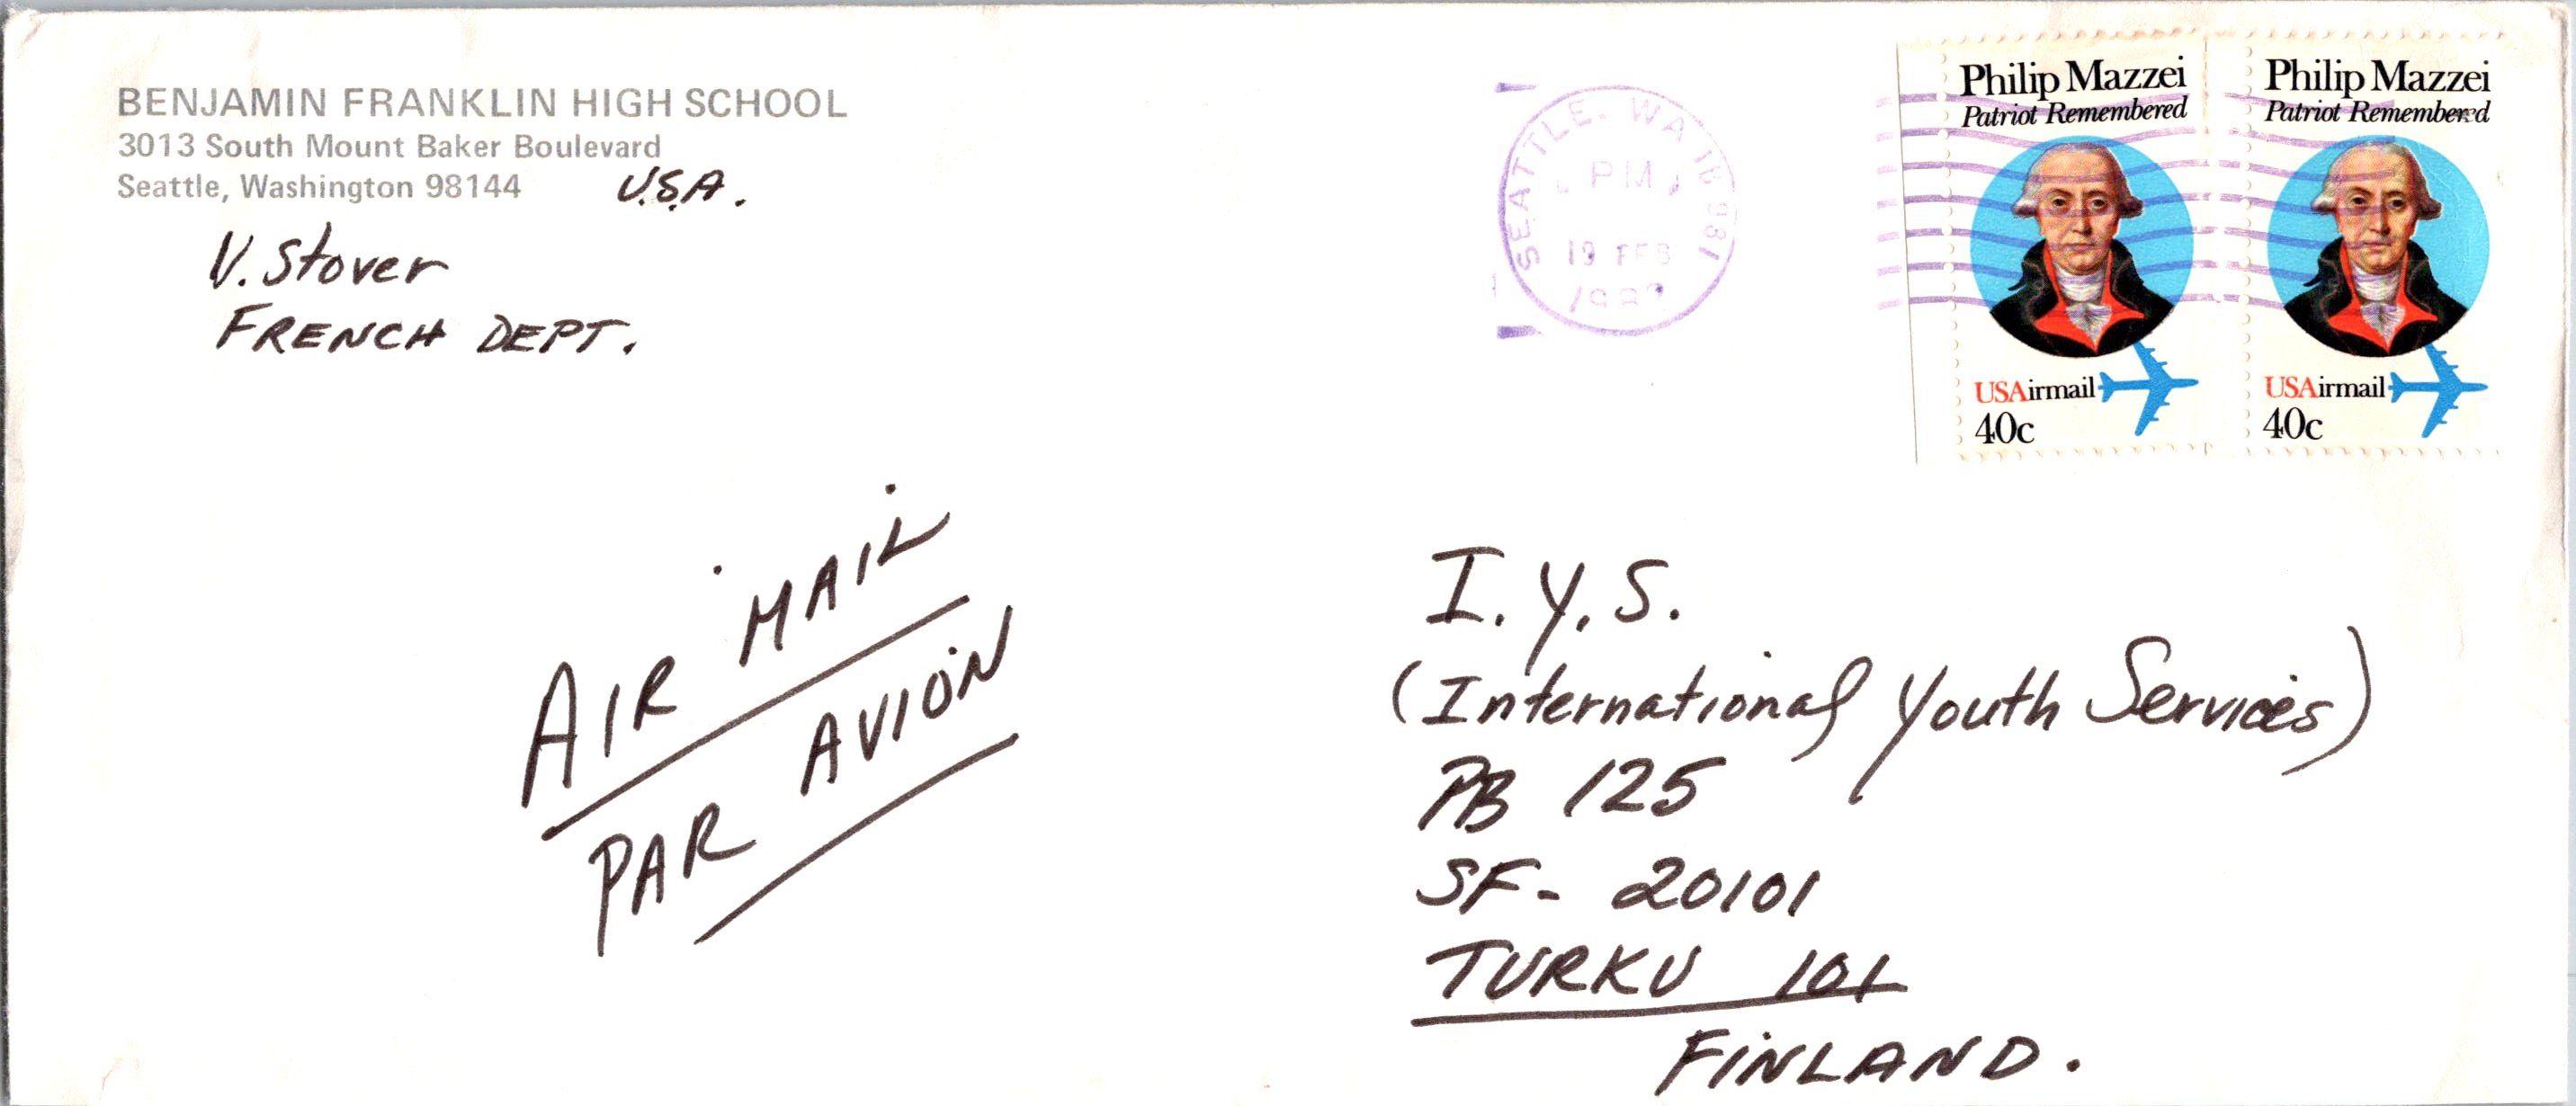 BENJAMIN FRANKLIN HIGH SCHOOL
3013 South Mount Baker Boulevard
Seattle, Washington 98144 U.S.A.
V. Stover
FRENCH DEPT.
SEATTLE. WA 981
PM
19 FEB
Philip Mazzei
Patriot Remembered
USAirmail
40c
Philip Mazzei
Patriot Remembered
USAirmail
40c
AIR MAIL
PAR AVION
I.Y.S.
(International Youth Services)
PB 125
SF- 20101
TURKU 101
FINLAND.